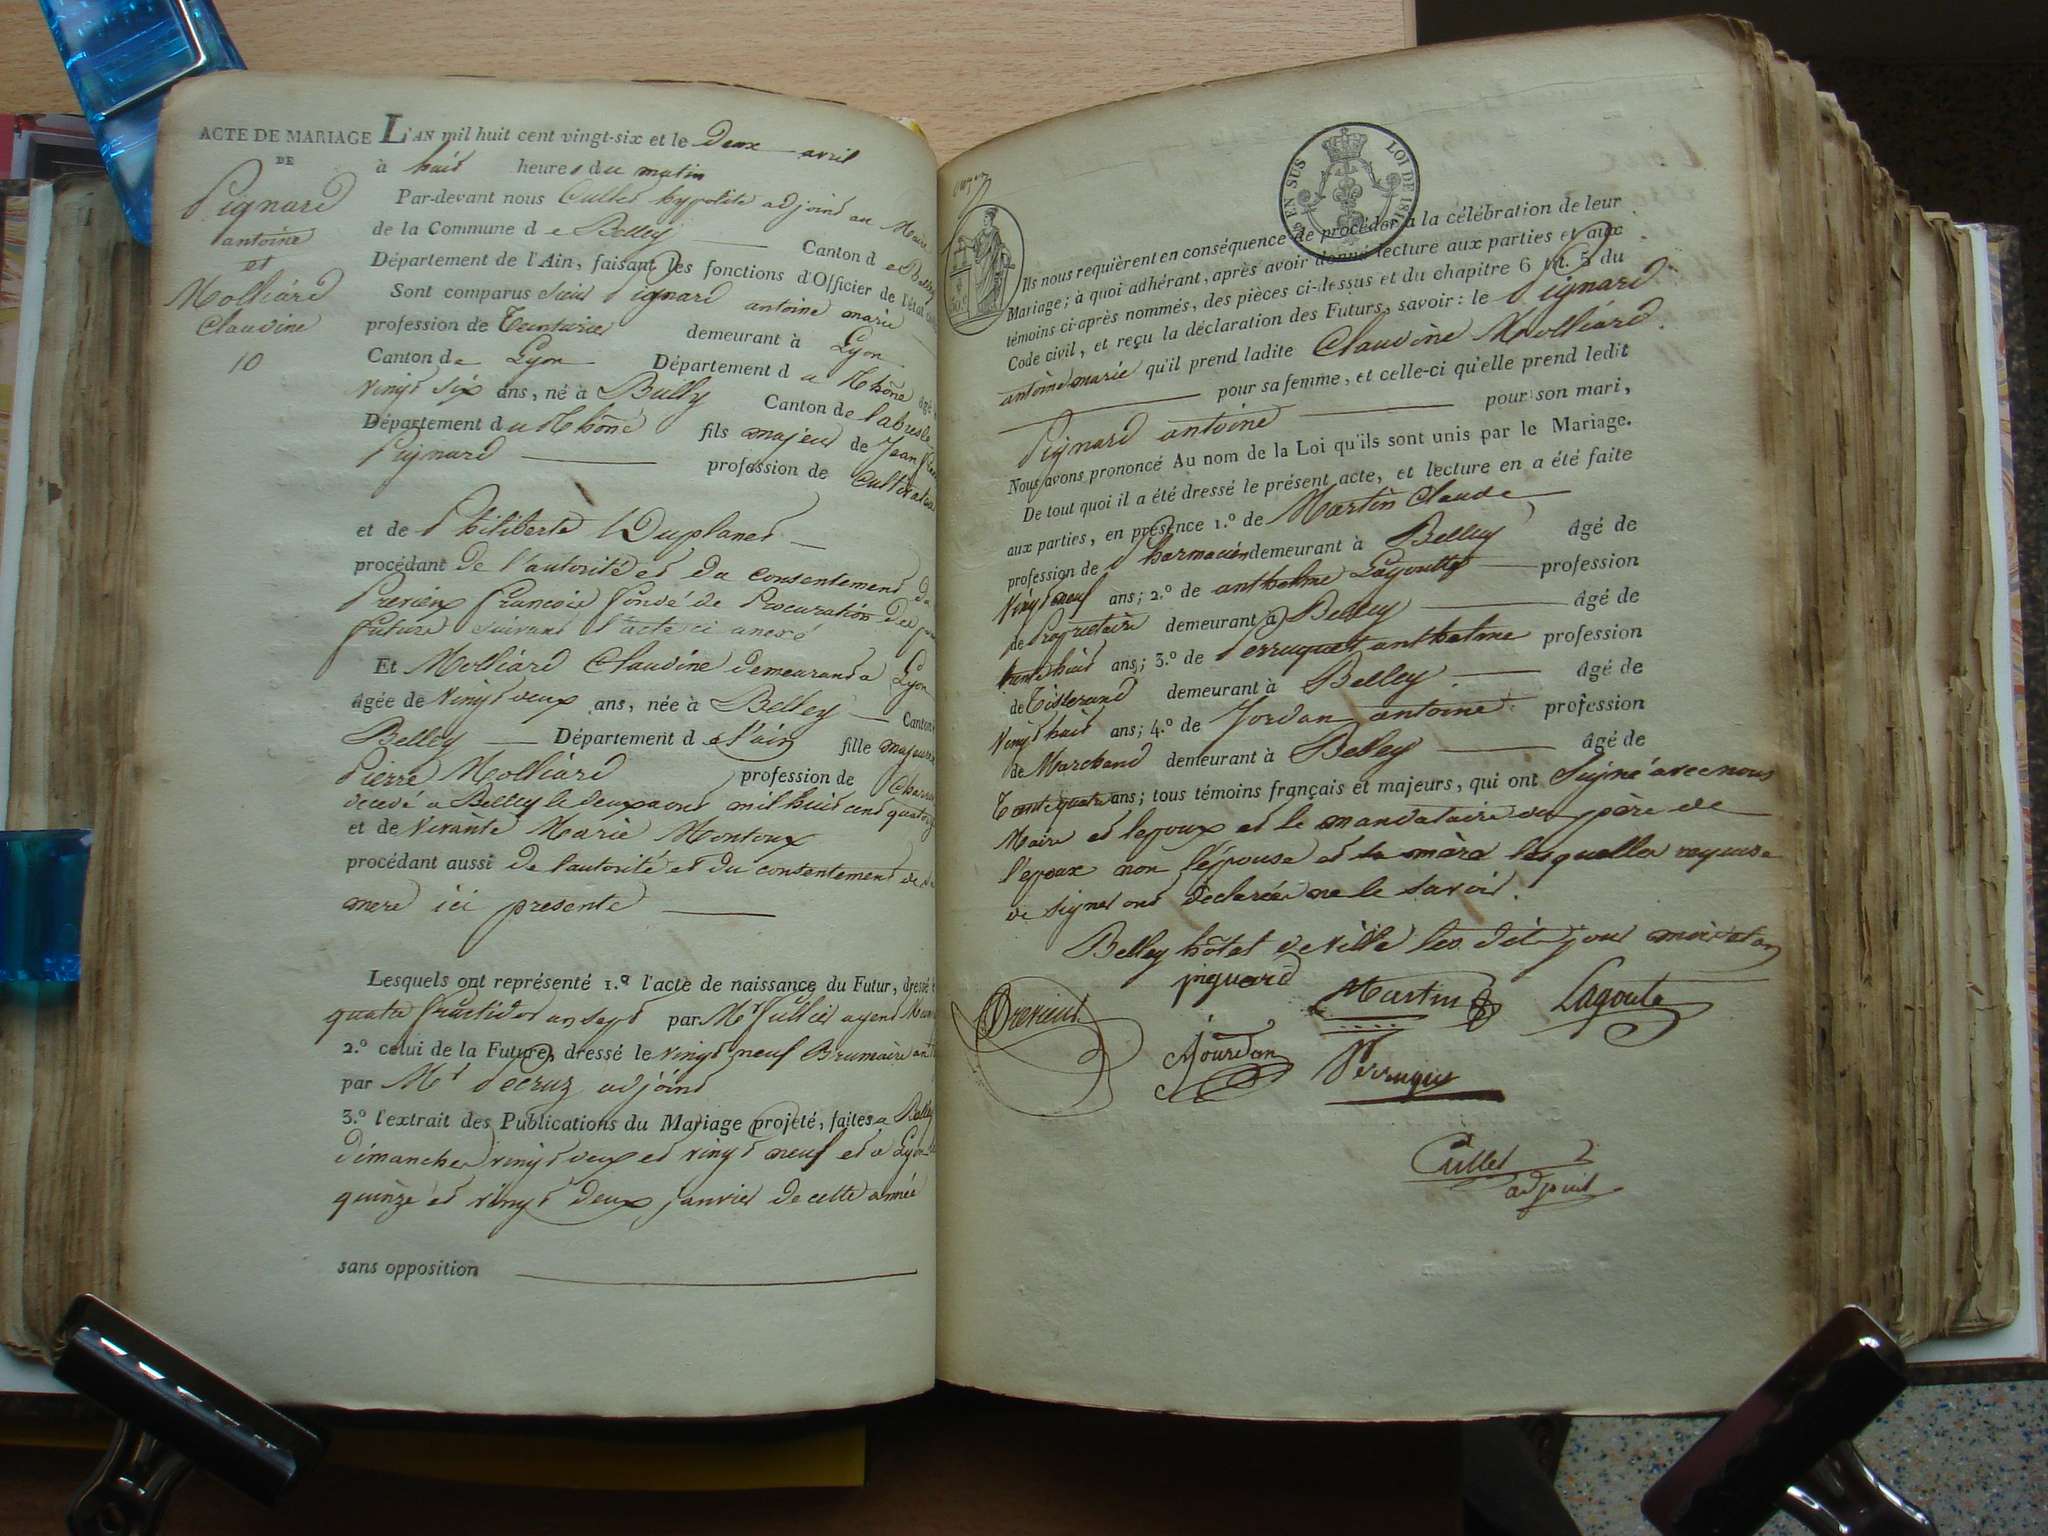 ACTE DE MARIAGE
DE
Pignard
antoine
et
Molliard
Claudine
10
L'AN mil huit cent vingt-six et le Deux avril
à huit heures du matin
Par-devant nous Cullet hypolite adjoint au Maire
de la Commune de Belley Canton de Belley
Département de l'Ain, faisant les fonctions d'Officier de l'état
Sont comparus Pignard antoine marie
profession de Teinturier demeurant à Lyon
Canton de Lyon Département du Rhône âgé
vingt six ans, né à Bully Canton de labresle
Département du Rhône fils majeur de Jean
Pignard profession de Cultivateur
et de Philiberte Duplanet
procédant de l'autorité et du consentement du
Previeux francois fondé de Procuration du
futur suivant l'acte ci anexé
Et Molliard Claudine demeurant a Lyon
âgée de vingt deux ans, née à Belley Canton
Belley Département de l'ain fille majeure
Pierre Molliard profession de
decedé a Belley le deux aout mil huit cent quatorze
et de vivante Marie Montoux
procédant aussi de l'autorité et du consentement de sa
mere ici presente
Lesquels ont représenté 1.º l'acte de naissance du Futur, dressé
quatre fructidor an sept par Mr agent
2.º celui de la Future, dressé le vingt neuf Brumaire an
par Mr adjoint
3.º l'extrait des Publications du Mariage projeté, faites a Belley
dimanches vingt deux et vingt neuf et a Lyon
quinze et vingt deux janvier de cette année
sans opposition
EN SUS LOI DE 181
Ils nous requièrent en conséquence de procéder à la célébration de leur
Mariage; à quoi adhérant, après avoir donné lecture aux parties et aux
témoins ci-après nommés, des pièces ci-dessus et du chapitre 6 du
Code civil, et reçu la déclaration des Futurs, savoir: le Pignard
antoine marie qu'il prend ladite Claudine Molliard
pour sa femme, et celle-ci qu'elle prend ledit
Pignard antoine pour son mari,
Nous avons prononcé Au nom de la Loi qu'ils sont unis par le Mariage.
De tout quoi il a été dressé le présent acte, et lecture en a été faite
aux parties, en présence 1.º de Martin Claude
profession de Pharmacien demeurant à Belley âgé de
vingt neuf ans; 2.º de anthelme Lagoutte profession
de Proprietaire demeurant à Belley âgé de
trente huit ans; 3.º de Perruquet anthelme profession
de Tisserand demeurant à Belley âgé de
vingt huit ans; 4.º de Jordan antoine profession
de Marchand demeurant à Belley âgé de
Trente quatre ans; tous témoins français et majeurs, qui ont Signé avec nous
Maire et lepoux et le mandataire du père de
l'epoux non l'épouse et sa mère lesquelles requise
de signer ont declarées ne le savoir.
Belley hôtel de ville les dits jour mois et an
pignard Martin Lagoute
Previeux
Jourdan Perruquet
Cullet
adjoint